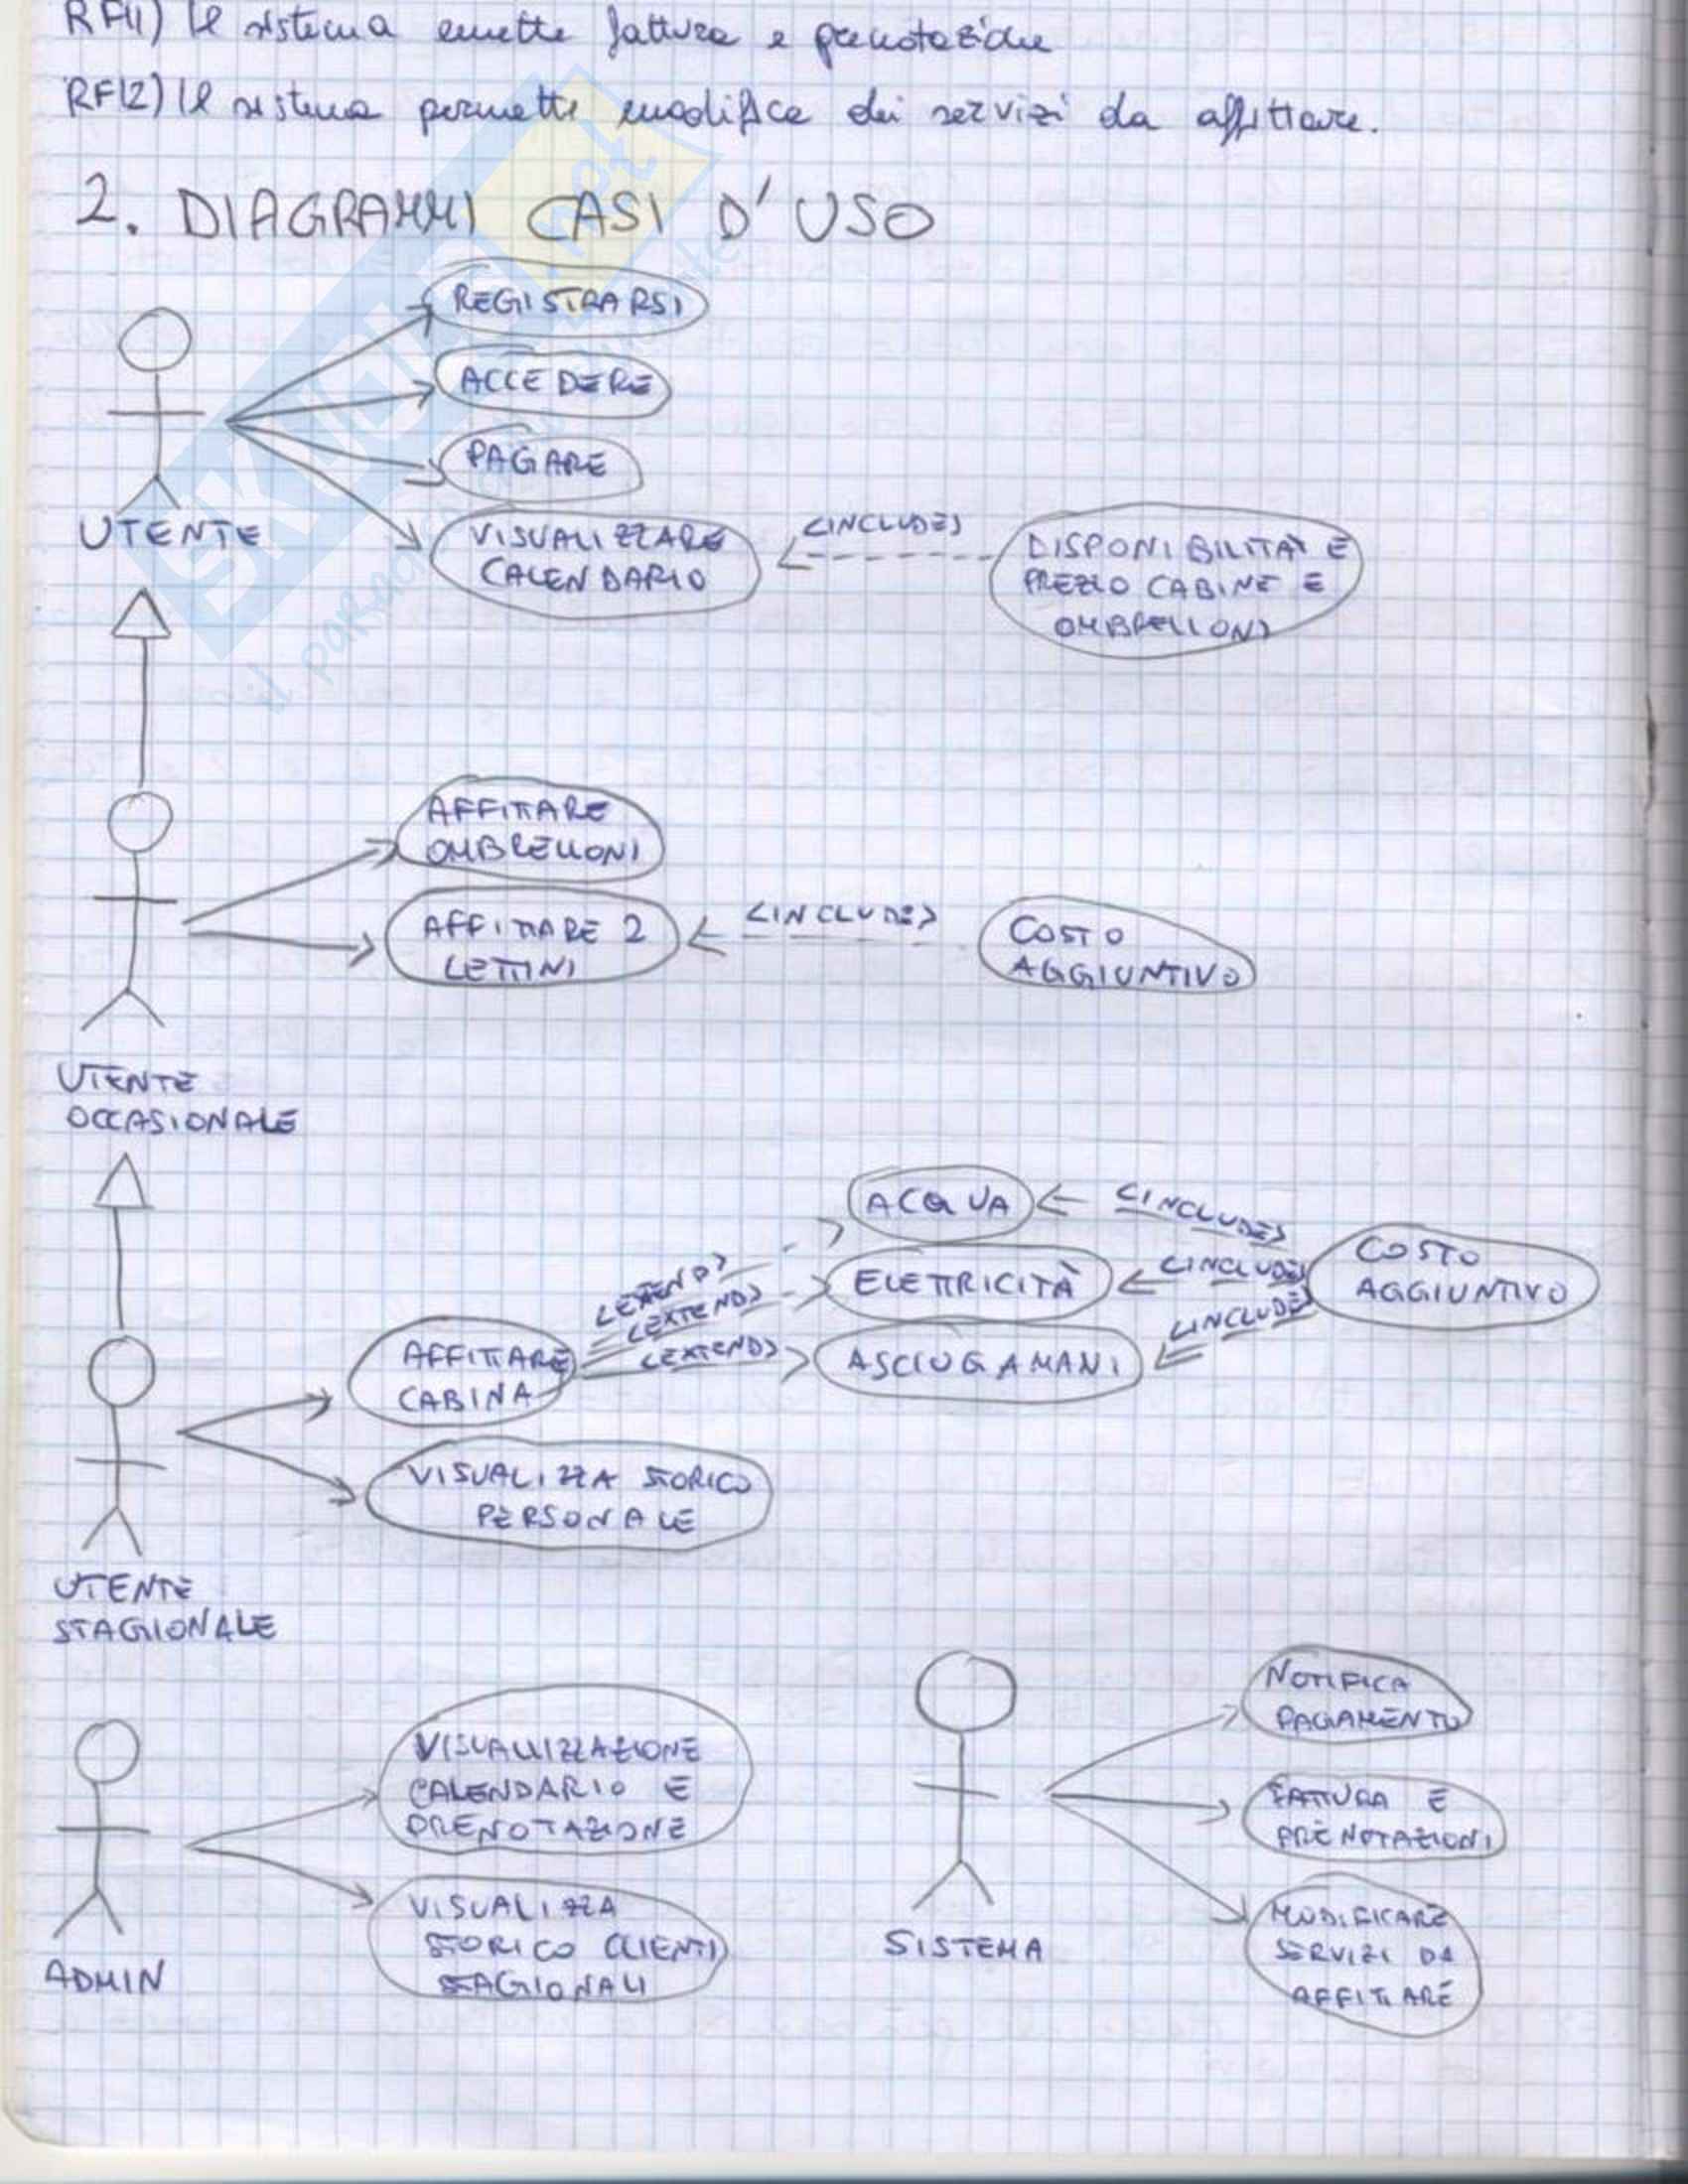 RF11) Il sistema emette fattura e prenotazione
RF12) Il sistema permette modifica dei servizi da affittare.
2. DIAGRAMMI CASI D'USO
REGISTRARSI
ACCEDERE
PAGARE
UTENTE
VISUALIZZARE
CALENDARIO
<INCLUDES>
DISPONIBILITÀ E
PREZZO CABINE E
OMBRELLONI
AFFITTARE
OMBRELLONI
AFFITTARE 2
LETTINI
<INCLUDES>
COSTO
AGGIUNTIVO
UTENTE
OCCASIONALE
ACQUA
<INCLUDES>
ELETTRICITÀ
<INCLUDES>
COSTO
AGGIUNTIVO
<EXTENDS>
<EXTENDS>
<EXTENDS>
ASCIUGAMANI
<INCLUDES>
AFFITTARE
CABINA
VISUALIZZA STORICO
PERSONALE
UTENTE
STAGIONALE
VISUALIZZAZIONE
CALENDARIO E
PRENOTAZIONE
VISUALIZZA
STORICO CLIENTI
STAGIONALI
ADMIN
NOTIFICA
PAGAMENTO
FATTURA E
PRENOTAZIONI
MODIFICARE
SERVIZI DA
AFFITTARE
SISTEMA
SKUOLA.net